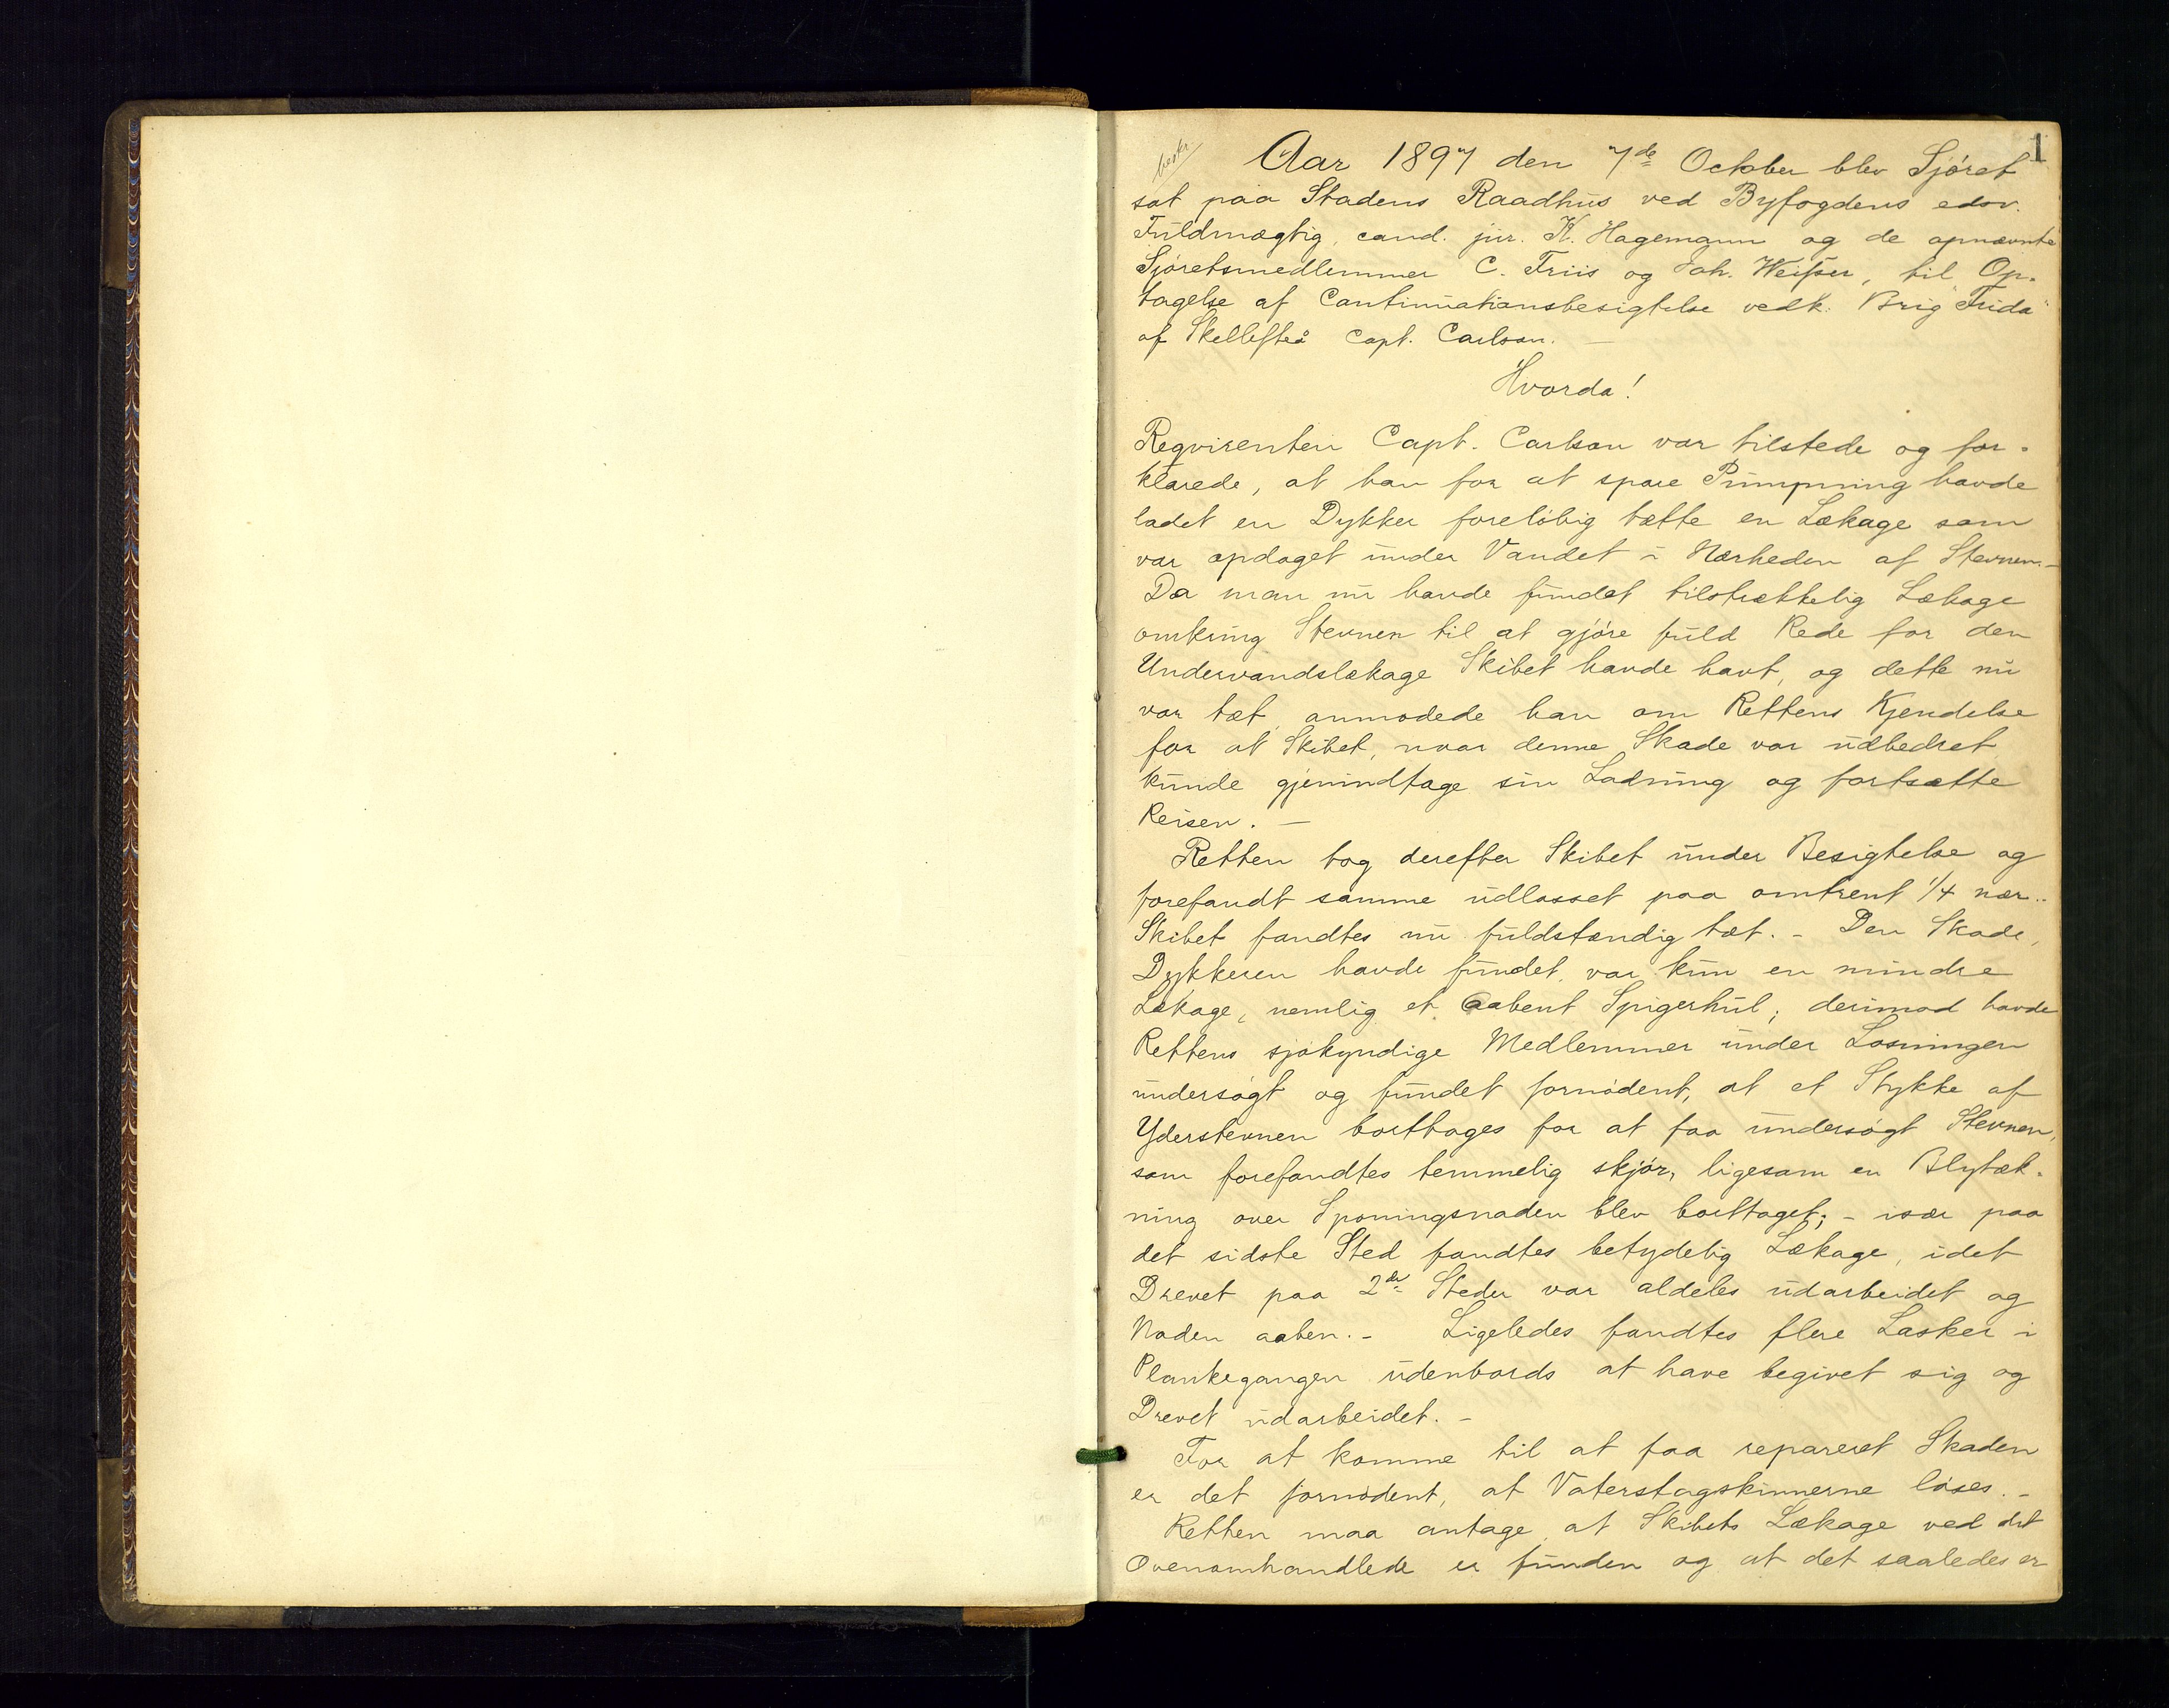 1
beskr
Aar 1897 den 7de October blev Sjöret
sat paa Stadens Raadhus ved Byfogdens edsv.
Fuldmægtig, cand. jur. K. Hagemann og de opnævnte
Sjöretsmedlemmer C. Friis og Joh. Weisser, til Op-
tagelse af Continuationsbesigtelse vedk. Brig "Frida"
af Skellefteå Capt. Carlson. —
Hvorda!
Reqvirenten Capt. Carlson var tilstede og for-
klarede, at han for at spare Pumpning havde
ladet en Dykker forelöbig tætte en Lækage som
var opdaget under Vandet i Nærheden af Stevnen.-
Da man nu havde fundet tilstrækkelig Lækage
omkring Stevnen til at gjöre fuld Rede for den
Undervandslækage Skibet havde havt, og dette nu
var tæt, anmodede han om Rettens Kjendelse
for at Skibet, naar denne Skade var udbedret
kunde gjenindtage sin Ladning og fortsætte
Reisen. —
Retten tog derefter Skibet under Besigtelse og
forefandt samme udlosset paa omtrent 1/4 nær.-
Skibet fandtes nu fuldstændig tæt. - Den Skade,
Dykkeren havde fundet, var kun en mindre
Lækage, nemlig et aabent Spigerhul; derimod havde
Rettens sjökyndige Medlemmer under Losningen
undersögt og fundet fornödent, at et Stykke af
Yderstevnen borttoges for at faa undersögt Stevnen,
som forefandtes temmelig skjör, ligesom en Blytæk-
ning over Sponingsnaden blev borttaget; - især paa
det sidste Sted fandtes betydelig Lækage, idet
Drevet paa 2de Steder var aldeles udarbeidet og
Naden aaben. - Ligeledes fandtes flere Lasker i
Plankegangen udenbords at have begivet sig og
Drevet udarbeidet. -
For at komme til at faa repareret Skaden
er det fornödent, at Vaterstagskinnerne löses. -
Retten maa antage, at Skibets Lækage ved det
Ovenomhandlede er funden og at det saaledes er